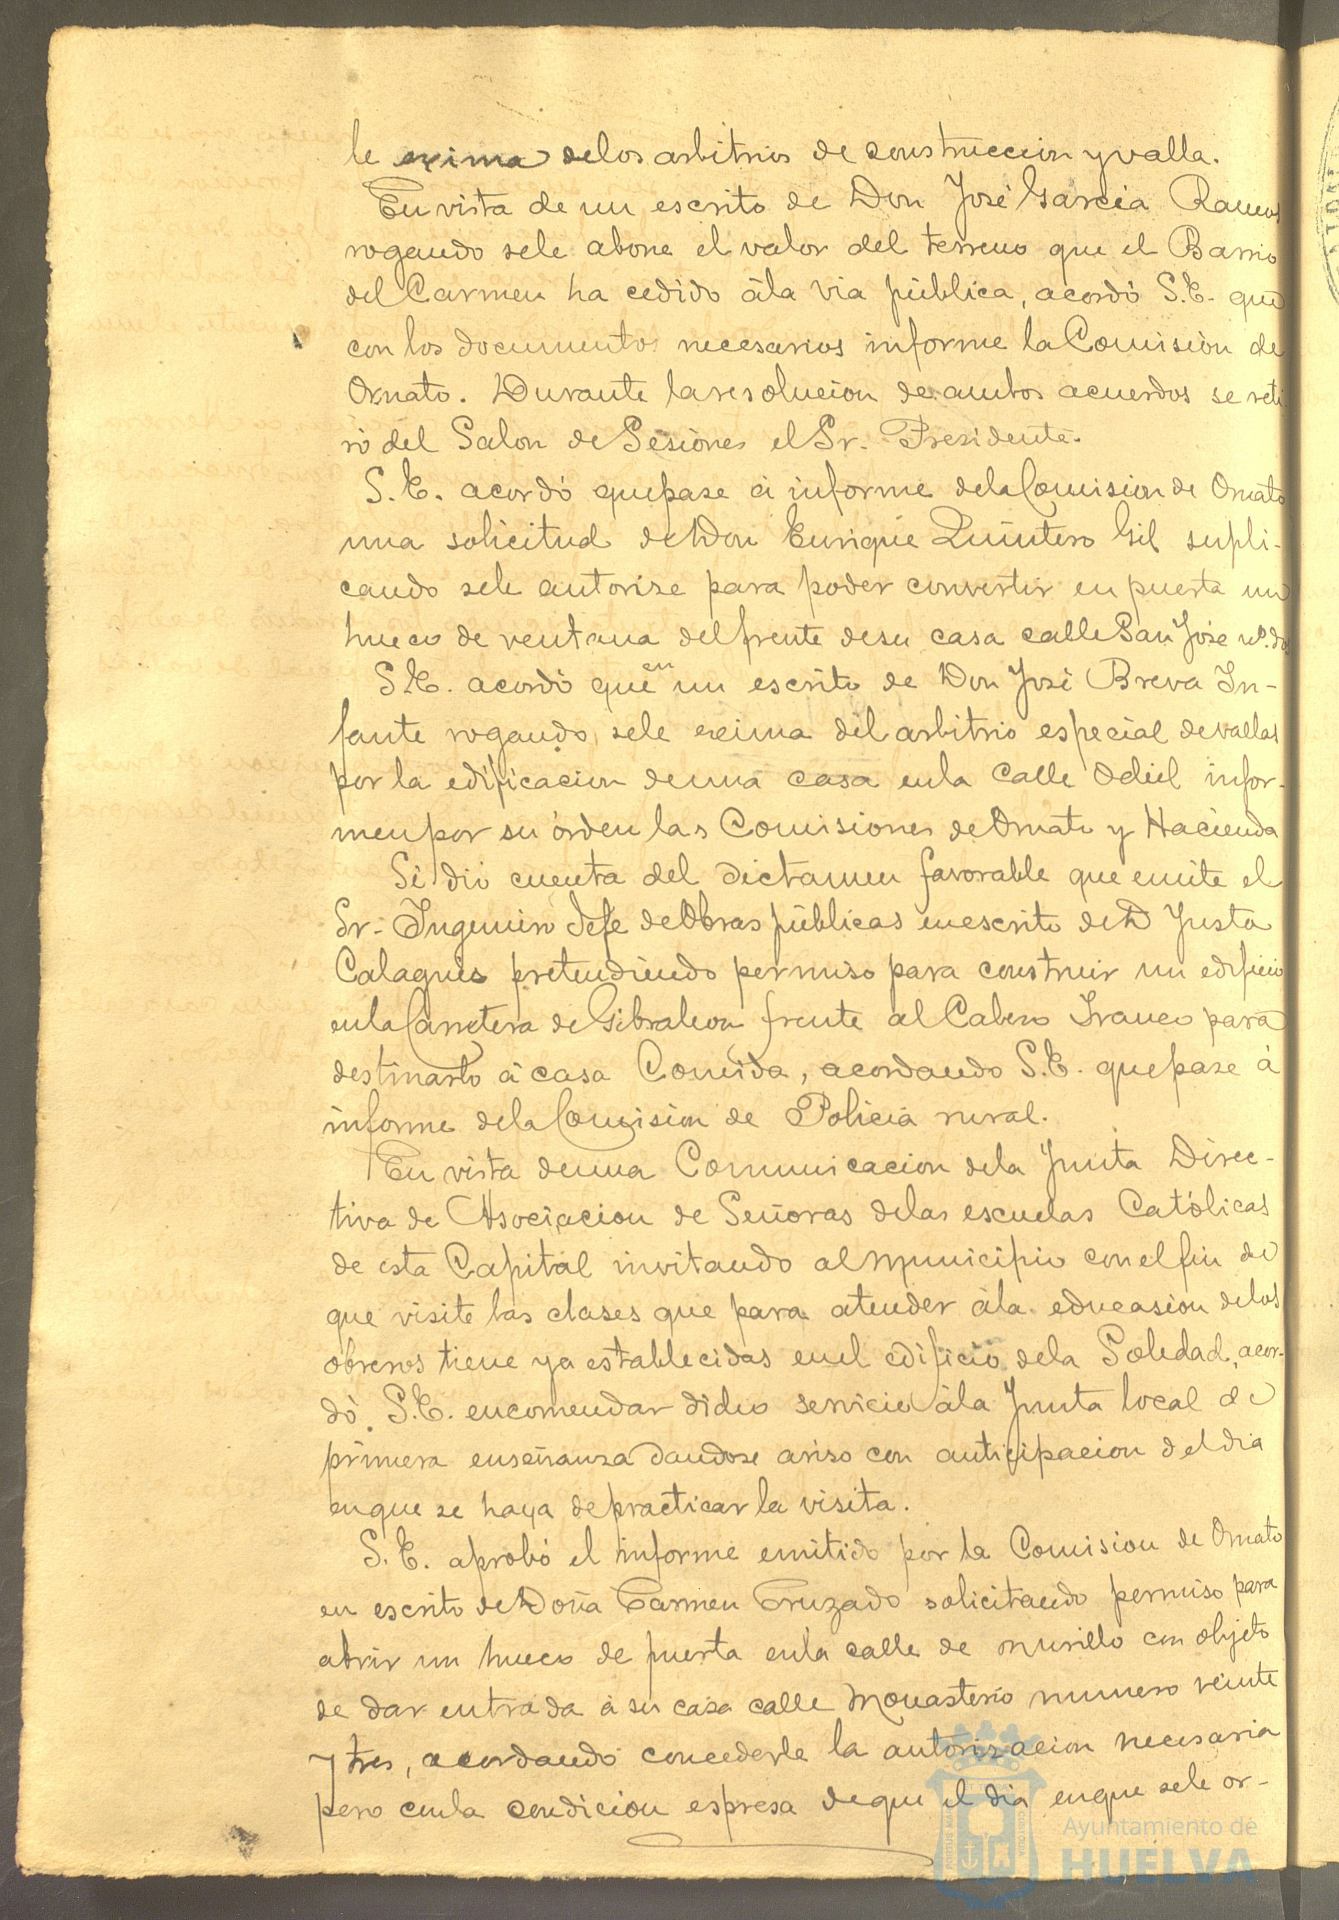 le exima delos arbitrios de construccion y valla.
En vista de un escrito de Don José Garcia Ramos
rogando sele abone el valor del terreno que el Barrio
del Carmen ha cedido ála via pública, acordó S.E. que
con los documentos necesarios informe la Comision de
Ornato. Durante la resolucion de ambos acuerdos se reti
ró del Salon de Sesiones el Sr. Presidente.
S.E. acordó que pase á informe dela Comision de Ornato
una solicitud de Don Enrique Quintero Gil supli-
cando sele autorize para poder convertir en puerta un
hueco de ventana del frente desu casa calle San José nº. dos
S.E. acordó que en un escrito de Don José Breva In-
fante rogando sele exima del arbitrio especial de vallas
por la edificacion de una casa enla Calle Odiel infor-
men por su órden las Comisiones de Ornato y Hacienda
Se dió cuenta del dictamen favorable que emite el
Sr. Ingeniero Jefe de Obras públicas en escrito de D Justo
pretendiendo permiso para construir un edificio
enla Carretera de Gibraleon frente al Cabezo para
destinarlo á casa Comida, acordando S.E. que pase á
informe dela Comision de Policia rural.
En vista de una Comunicacion dela Junta Direc-
tiva de Asociacion de Señoras delas escuelas Católicas
de esta Capital invitando al Municipio con el fin de
que visite las clases que para atender ála educasion delos
obreros tiene ya establecidas en el edificio dela Soledad, acor-
dó S.E. encomendar dicho servicio ála Junta local de
primera enseñanza dandose aviso con anticipacion del dia
en que se haya de practicar la visita.
S.E. aprobó el informe emitido por la Comision de Ornato
en escrito de Doña Carmen Cruzado solicitando permiso para
abrir un hueco de puerta enla calle de Murillo con objeto
de dar entrada á su casa calle Monasterio numero veinte
y tres, acordando concederle la autorizacion necesaria
pero conla condicion espresa deque el dia enque sele or-
Ayuntamiento de
HUELVA